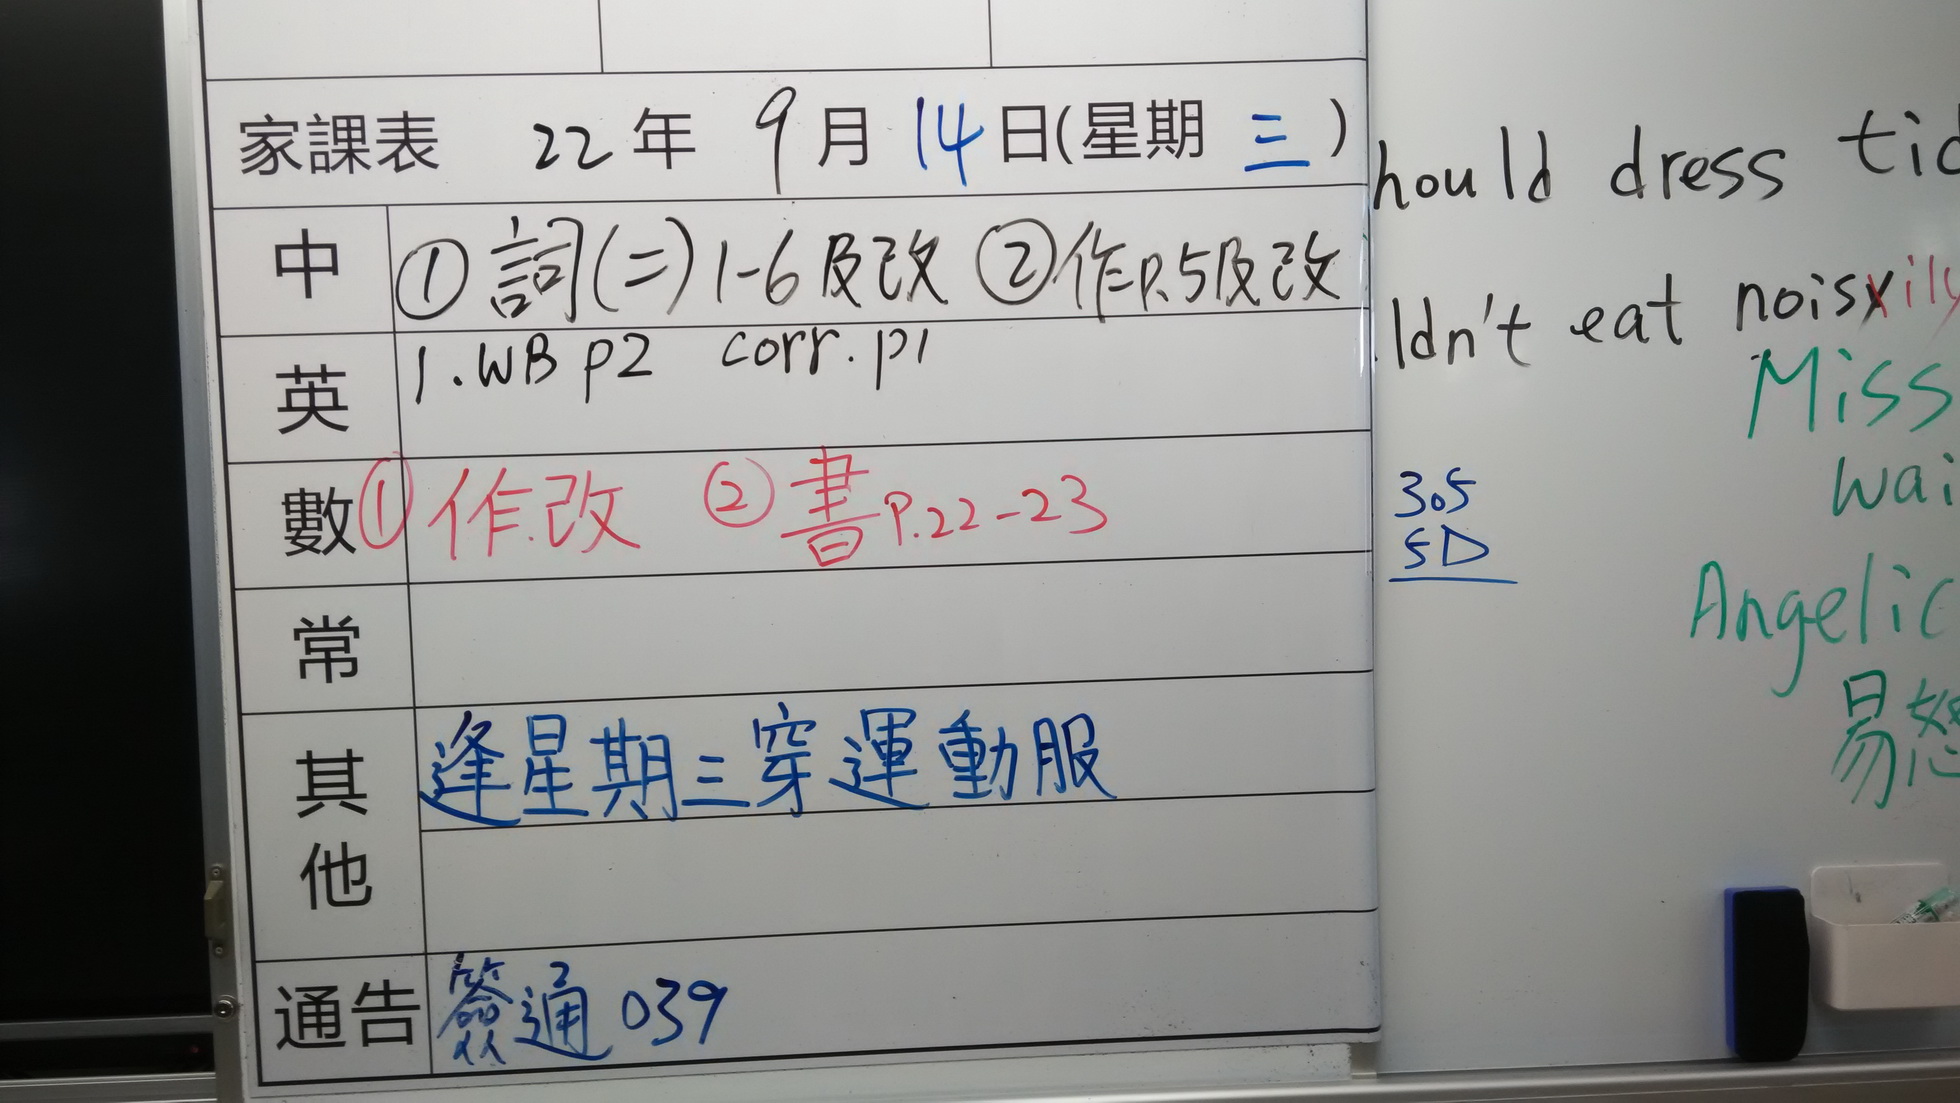 家課表 22年 9月14日(星期三)
中 ①詞(二)1-6及改 ②作P.5及改
英 1.WB p2 corr.p1
數 ①作改 ②書P.22-23
常
其他 逢星期三穿運動服
通告 簽通039
hould dress tid
ldn't eat noisyily
Miss
wai
305
5D
Angelic
易怒